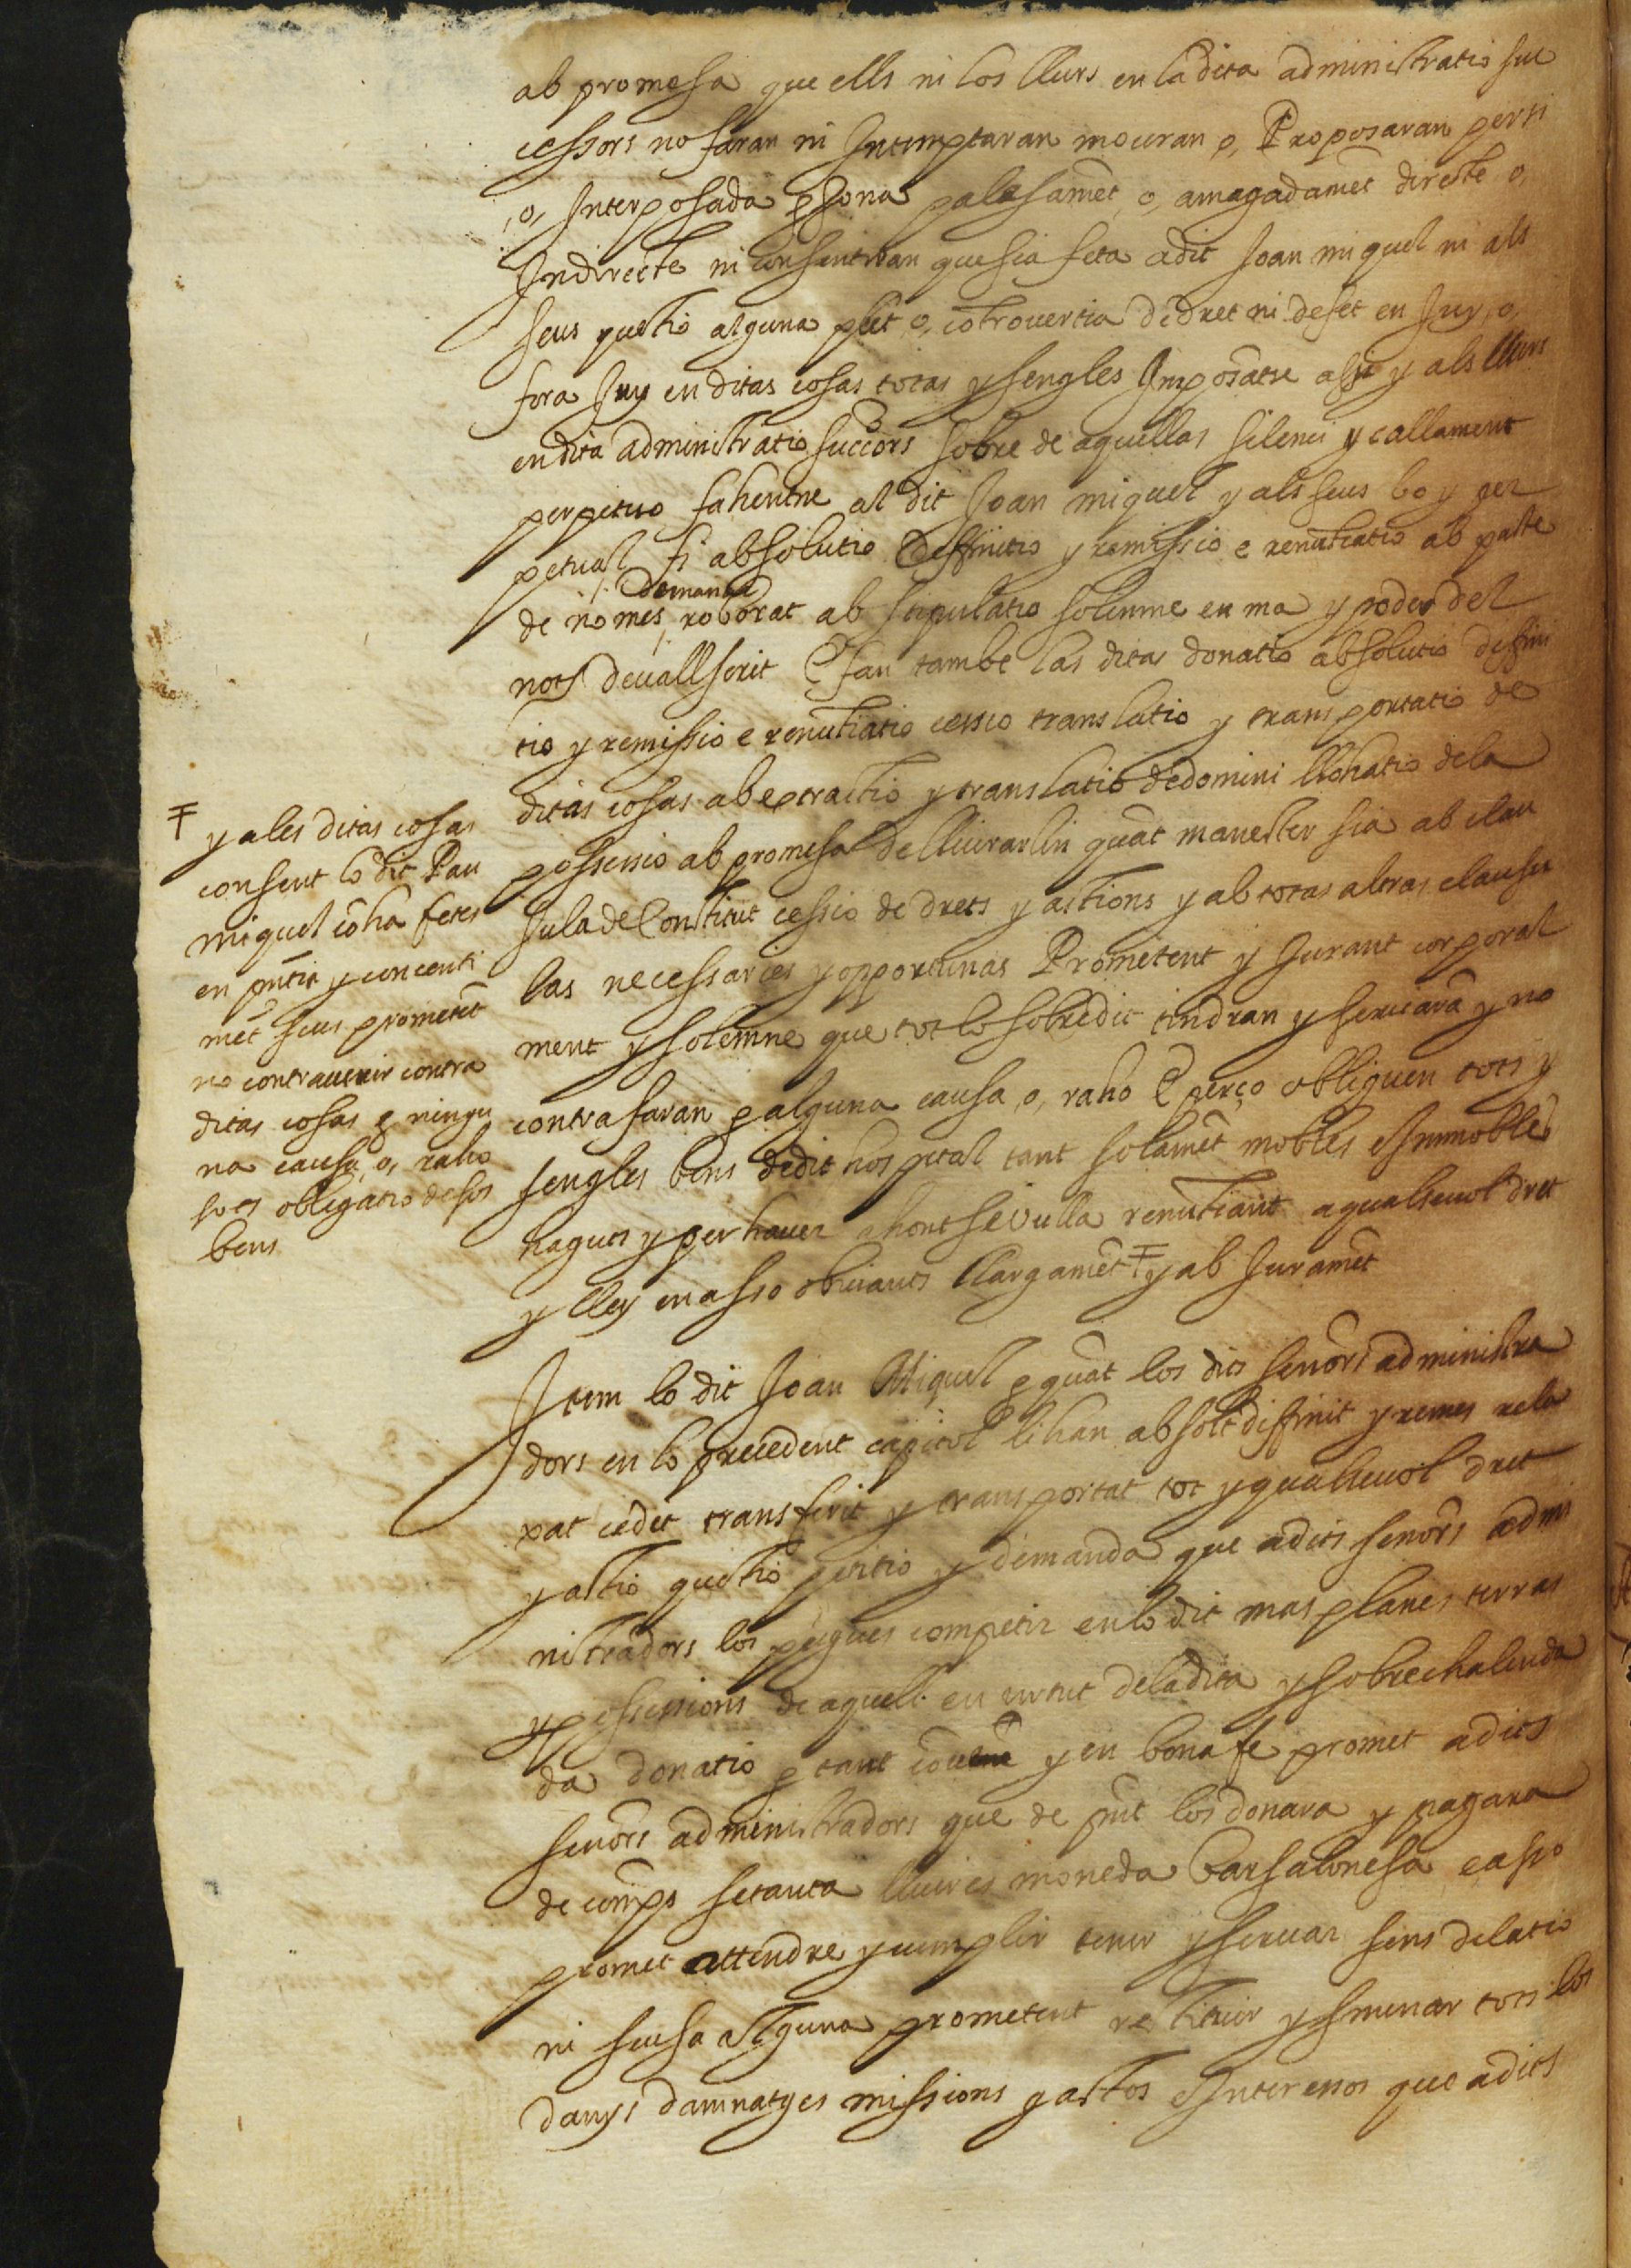 ab promesa que ells ni los llurs en la dita administratio suc
cessors no faran ni Intemptaran mouran o, Proposaran per si
,o, Interposada psona palesamēt ,o, amagadamēt directe o,
Indirecte ni consentiran que sia feta a dit Joan miquel ni als
seus questio alguna plet ,o, cōtrouersia de dret ni de fet en Juy ,o,
fora Juy en ditas cosas totas y sengles Imposātse assi y als llurs
en dita administratio succōrs sobre de aquellas silenci y callament
perpetuo fahentne al dit Joan miquel y als seus bo y per
petual fi absolutio deffinitio y remissio e renūtiatio ab pacte
de no mes demanda roborat ab stipulatio solemne en ma y poder del
notj deuall scrit E fan tambe las ditas donatio absolutio deffini
tio y remissio e renūtiatio cessio translatio y transportatio de
ditas cosas ab extractio y translatio de domini llohatio de la
possessio ab promesa de lliurarlin quāt manester sia ab clau
sula de Constitut cessio de drets y actions y ab totas altras clausu
las necessaries y opportunas Prometent y Jurant corporal
ment y solemne que tot lo sobredit tindran y seruarā y no
contrafaran p alguna causa ,o, raho E perço obliguen tots y
sengles bens de dit hospital tant solamēt mobles e Immobles
haguts y per hauer ahont se vulla renūtiant a qualseuol dret
y lley en asso obuiants llargamēt Ŧ y ab Juramēt
Ŧ y a les ditas cosas
consent lo dit Pau
miquel cō ha fetes
en pñtia y consenti
mēt seus prometēt
no contrauenir contra
ditas cosas p ningu
na causa ,o, raho
sots obligatio de sos
bens
Item lo dit Joan Miquel p quāt los dits señors administra
dors en lo precedent capitol li han absolt diffinit y remes rela
xat cedit transferit y transportat tot y qualseuol dret
y actio questio petitio y demanda que a dits señors admi
nistradors los pugues competir en lo dit mas planes terras
y possessions de aquell en virtut de la dita y sobrechalenda
da donatio p tant cōue y en bona fe promet a dits
señors administradors que de pñt los donara y pagara
de comps setanta lliures moneda barsalonesa e asso
promet attendre y cumplir tenir y seruar sens dilatio
ni scusa alguna prometent restituir y smenar tots los
danys damnatges missions gastos e Interessos que a dits